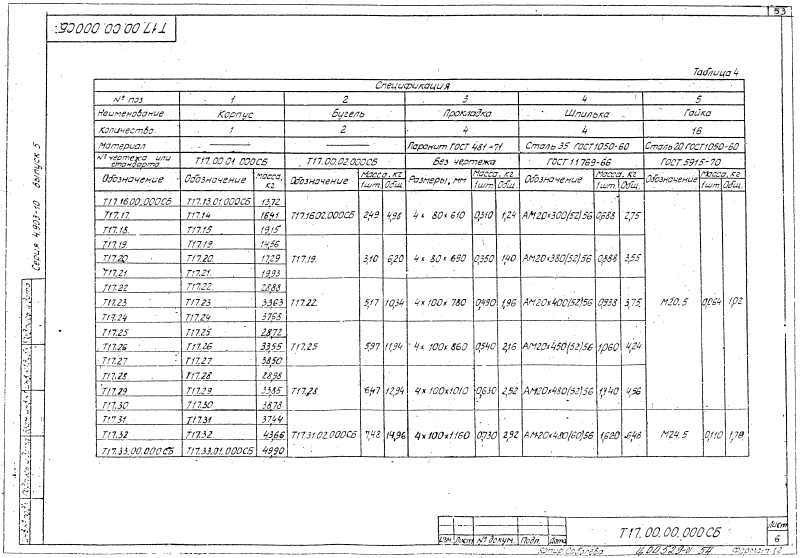 53
Т17.00.00.000СБ
Серия 4.903-10 выпуск 5
Таблица 4
Спецификация
№ поз. 1 2 3 4 5
Наименование Корпус Бугель Прокладка Шпилька Гайка
Количество 1 2 4 4 16
Материал Паронит ГОСТ 481-71 Сталь 35 ГОСТ 1050-60 Сталь 20 ГОСТ 1050-60
№ чертежа или стандарта Т17.00.01.000СБ Т17.00.02.000СБ Без чертежа ГОСТ 11769-66 ГОСТ 5915-70
Обозначение Обозначение Масса, кг Обозначение Масса, кг 1шт. Общ. Размеры, мм Масса, кг 1шт. Общ. Обозначение Масса, кг 1шт. Общ. Обозначение Масса, кг 1шт. Общ.
Т17.16.00.000СБ Т17.13.01.000СБ 13,72
Т17.17. Т17.14 16,41 Т17.16.02.000СБ 2,49 4,98 4 х 80 х 610 0,310 1,24 АМ20х300/(52)56 0,688 2,75
Т17.18. Т17.15 19,15
Т17.19 Т17.19. 14,56
Т17.20 Т17.20. 17,29 Т17.19. 3,10 6,20 4 х 80 х 690 0,350 1,40 АМ20х380/(52)56 0,888 3,55
Т17.21 Т17.21. 19,93
Т17.22 Т17.22. 28,88
Т17.23 Т17.23 33,63 Т17.22. 5,17 10,34 4 х 100 х 780 0,490 1,96 АМ20х400/(52)56 0,938 3,75 М20.5 0,064 1,02
Т17.24 Т17.24 37,63
Т17.25 Т17.25 28,72
Т17.26 Т17.26 33,55 Т17.25 5,97 11,94 4 х 100 х 860 0,540 2,16 АМ20х450/(52)56 1,060 4,24
Т17.27 Т17.27 38,50
Т17.28 Т17.28 28,98
Т17.29 Т17.29 33,85 Т17.28 6,47 12,94 4 х 100 х 1010 0,630 2,52 АМ20х480/(52)56 1,140 4,56
Т17.30 Т17.30 38,78
Т17.31 Т17.31 37,44
Т17.32 Т17.32 43,66 Т17.31.02.000СБ 7,48 14,96 4 х 100 х 1160 0,730 2,92 АМ20х480/(60)56 1,620 6,48 М24.5 0,110 1,78
Т17.33.00.000СБ Т17.33.01.000СБ 49,90
Изм. Лист № докум. Подп. Дата
Т17.00.00.000СБ
Лист
6
Копир. Соболева
Формат 12